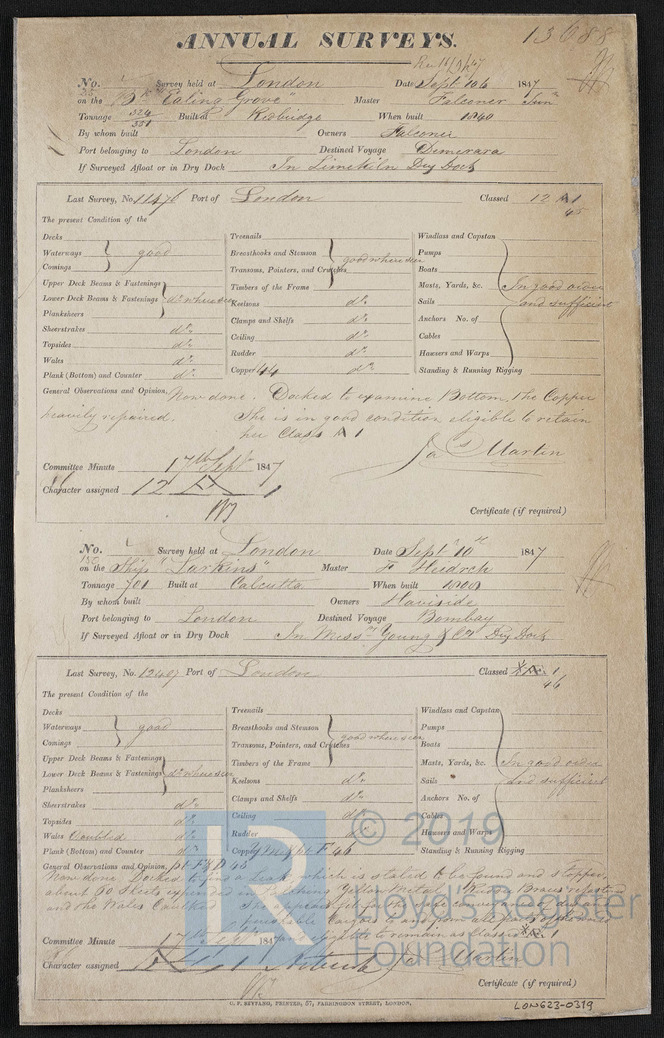 13688
ANNUAL SURVEYS.
No. Survey held at London Date Sept 10 1847
on the Bk "Ealing Grove" Master Falconer Jun
Tonnage 324 351 Built at Redbridge When built 1840
By whom built Owners Falconer
Port belonging to London Destined Voyage Demerara
If Surveyed Afloat or in Dry Dock In Limekiln Dry Dock
Last Survey, No. 11476 Port of London Classed 12 A 1
45
The present Condition of the
Decks
Waterways good
Comings
Upper Deck Beams & Fastenings
Lower Deck Beams & Fastenings do where seen
Planksheers
Sheerstrakes do
Topsides do
Wales do
Plank (Bottom) and Counter do
Treenails
Breasthooks and Stemson good where seen
Transoms, Pointers, and Crutches
Timbers of the Frame
Keelsons do
Clamps and Shelfs do
Ceiling do
Rudder do
Copper 44 do
Windlass and Capstan
Pumps
Boats
Masts, Yards, &c. In good order
Sails and sufficient
Anchors No. of
Cables
Hawsers and Warps
Standing & Running Rigging
General Observations and Opinion, Now done. Docked to examine Bottom, the Copper
heavily repaired. She is in good condition eligible to retain
her Class A 1
Jas Martin
Committee Minute 17th Sept 1847
Character assigned 12 A 1
Certificate (if required)
No. Survey held at London Date Sept 10th 1847
on the Ship "Larkins" Master
Tonnage 701 Built at Calcutta When built 1808
By whom built Owners Haviside
Port belonging to London Destined Voyage Bombay
If Surveyed Afloat or in Dry Dock In Messrs Young & Cos Dry Dock
Last Survey, No. 12407 Port of London Classed 1
46
The present Condition of the
Decks
Waterways good
Comings
Upper Deck Beams & Fastenings
Lower Deck Beams & Fastenings do where seen
Planksheers
Sheerstrakes do
Topsides do
Wales Doubled do
Plank (Bottom) and Counter do
Treenails
Breasthooks and Stemson good where seen
Transoms, Pointers, and Crutches
Timbers of the Frame
Keelsons do
Clamps and Shelfs do
Ceiling do
Rudder do
Copper 46
Windlass and Capstan
Pumps
Boats
Masts, Yards, &c. In good order
Sails and sufficient
Anchors No. of
Cables
Hawsers and Warps
Standing & Running Rigging
General Observations and Opinion, 45
Now done. Docked to find a Leak which is stated to be found and stopped,
about 60 Sheets expended in Patching Yellow Metal
and the Wales Caulked
to remain as Classed
Committee Minute 17 Sept 1847
Character assigned Martin
Certificate (if required)
C. F. SEYFANG, PRINTER, 57, FARRINGDON STREET, LONDON.
LON623-0319
LR © 2019
Lloyd's Register
Foundation